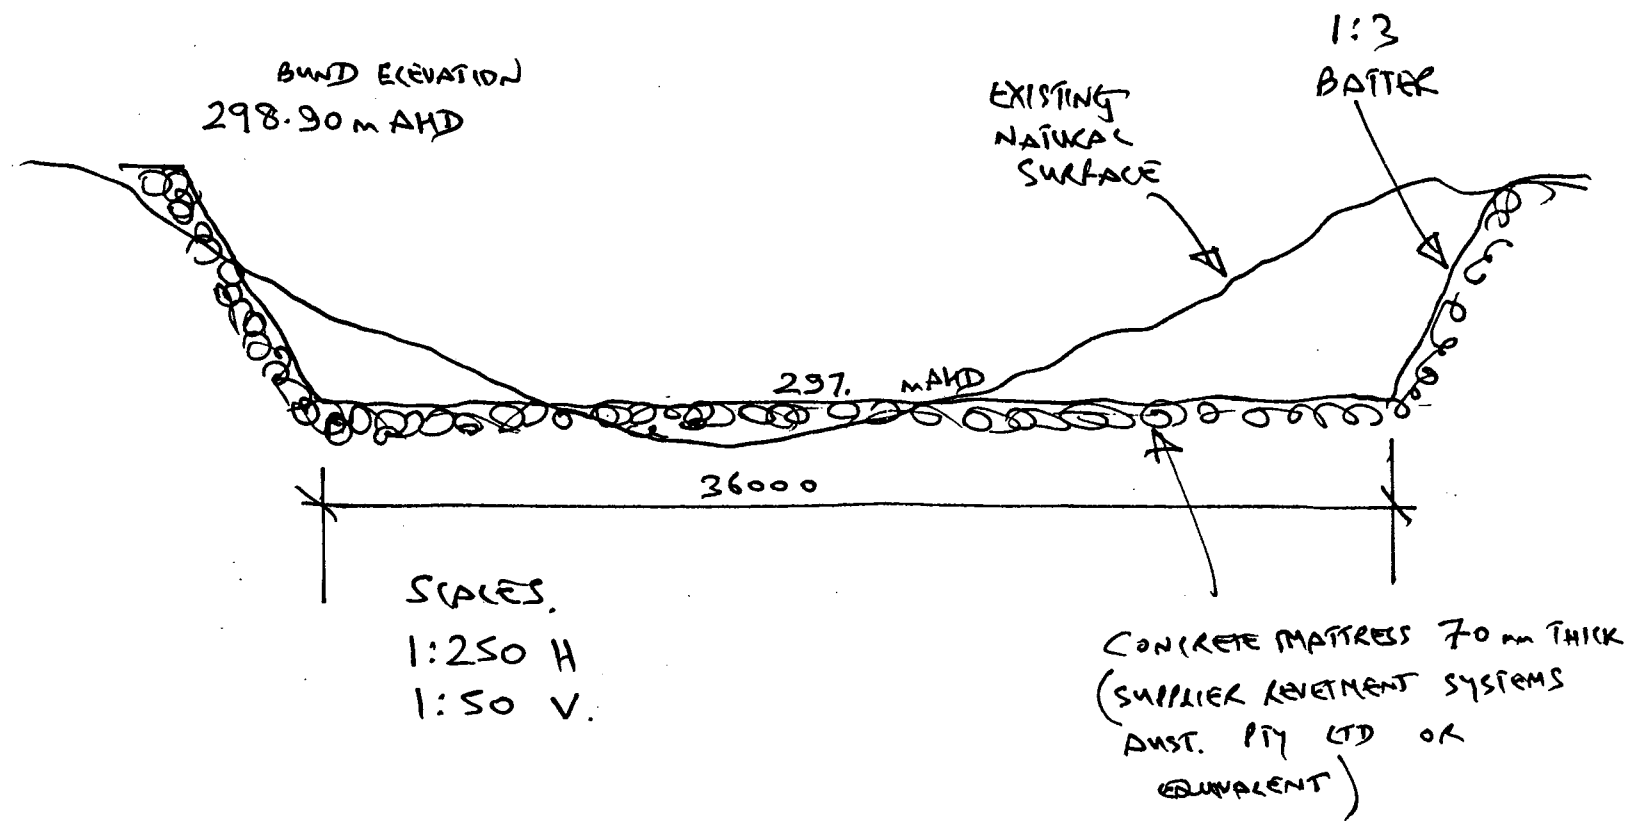 1:3
BATTER
BUND ELEVATION
298.90 m AHD
EXISTING
NATURAL
SURFACE
297. mAHD
36000
SCALES.
1:250 H
1:50 V.
CONCRETE MATTRESS 70 mm THICK
(SUPPLIER REVETMENT SYSTEMS
AUST. PTY LTD OR
EQUIVALENT)